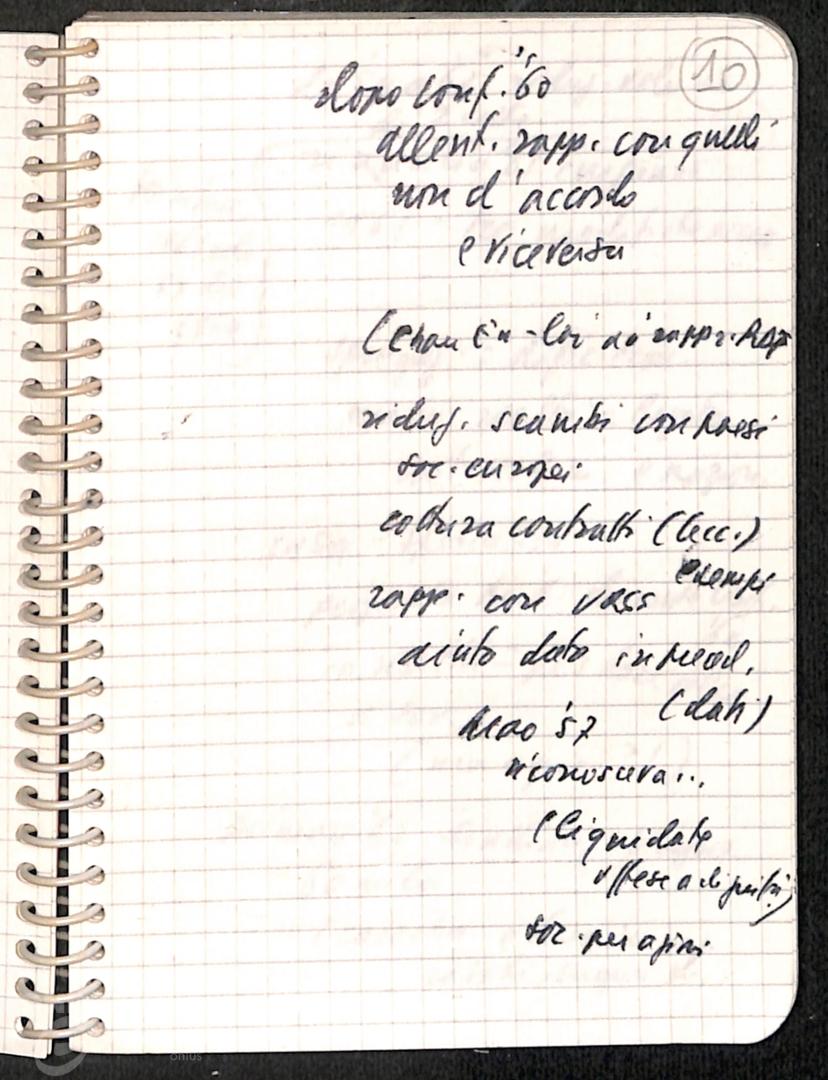 10
dopo conf. '60
allent. rapp. con quelli
non d'accordo
e viceversa
(Chou En-lai rapp.
riduz. scambi con paesi
soc. europei
rottura contratti (tecc.)
esempi
rapp. con URSS
aiuto dato in preced.
(dati)
Mao '57
riconosceva...
(liquidate
offese a di
soc. per azioni
onlus